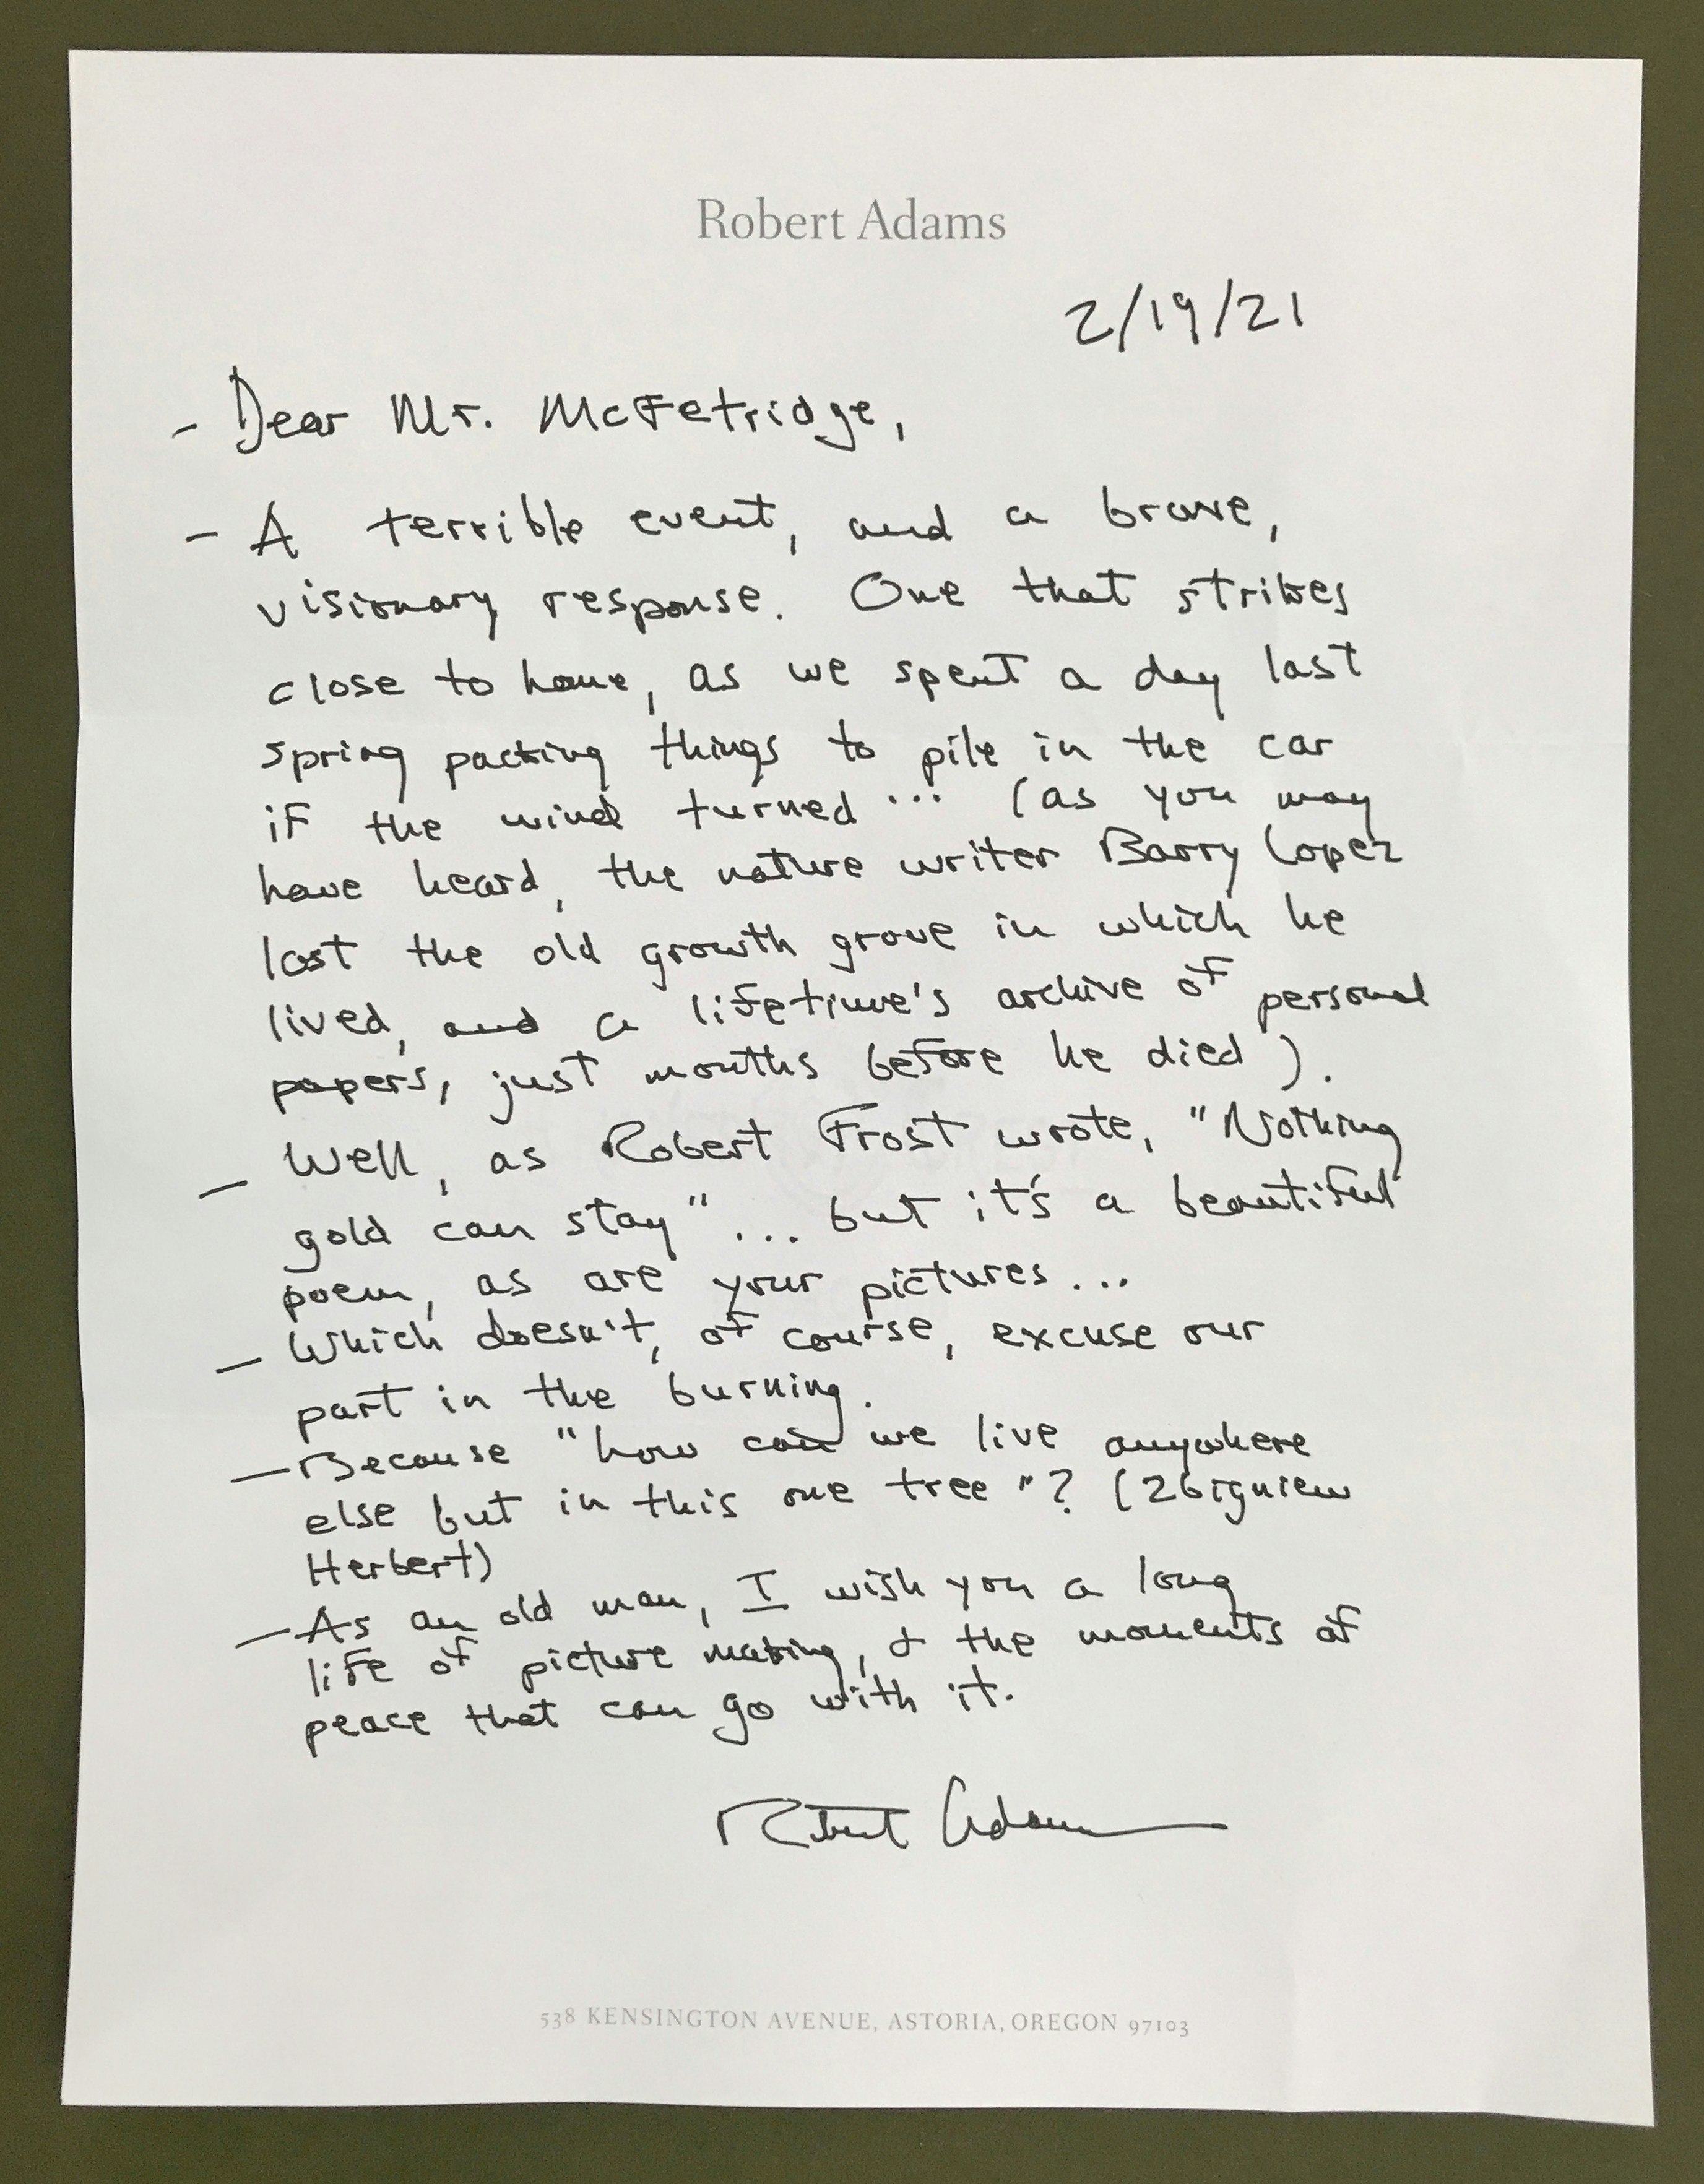 Robert Adams
2/19/21
- Dear Mr. McFetridge,
- A terrible event, and a brave,
visionary response. One that strikes
close to home, as we spent a day last
spring packing things to pile in the car
if the wind turned ... (as you may
have heard, the nature writer Barry Lopez
lost the old growth grove in which he
lived, and a lifetime's archive of personal
papers, just months before he died).
- Well, as Robert Frost wrote, "Nothing
gold can stay"... but it's a beautiful
poem, as are your pictures...
- Which doesn't, of course, excuse our
part in the burning.
- Because "how can we live anywhere
else but in this one tree"? (Zbigniew
Herbert)
- As an old man, I wish you a long
life of picture making, & the moments of
peace that can go with it.
Robert Adams
538 KENSINGTON AVENUE, ASTORIA, OREGON 97103